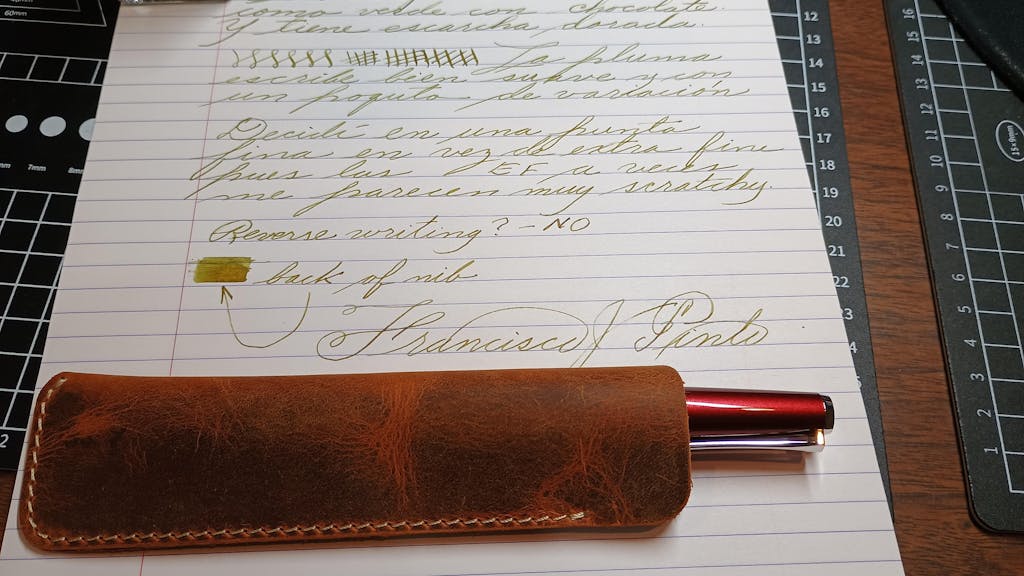 como verde con chocolate.
Y tiene escarcha dorada.
La pluma
escribe bien suave y con
un poquito de variación
Decidí en una punta
fina en vez de extra fine
pues las EF a veces
me parecen muy scratchy.
Reverse writing? - NO
back of nib
Francisco J Pinto
60mm
7mm
8m
2
12
13
14
15
16
17
18
19
20
21
22
23
16
15
14
13
12
11
10
9
8
7
6
5
4
3
2
1
15x9mm